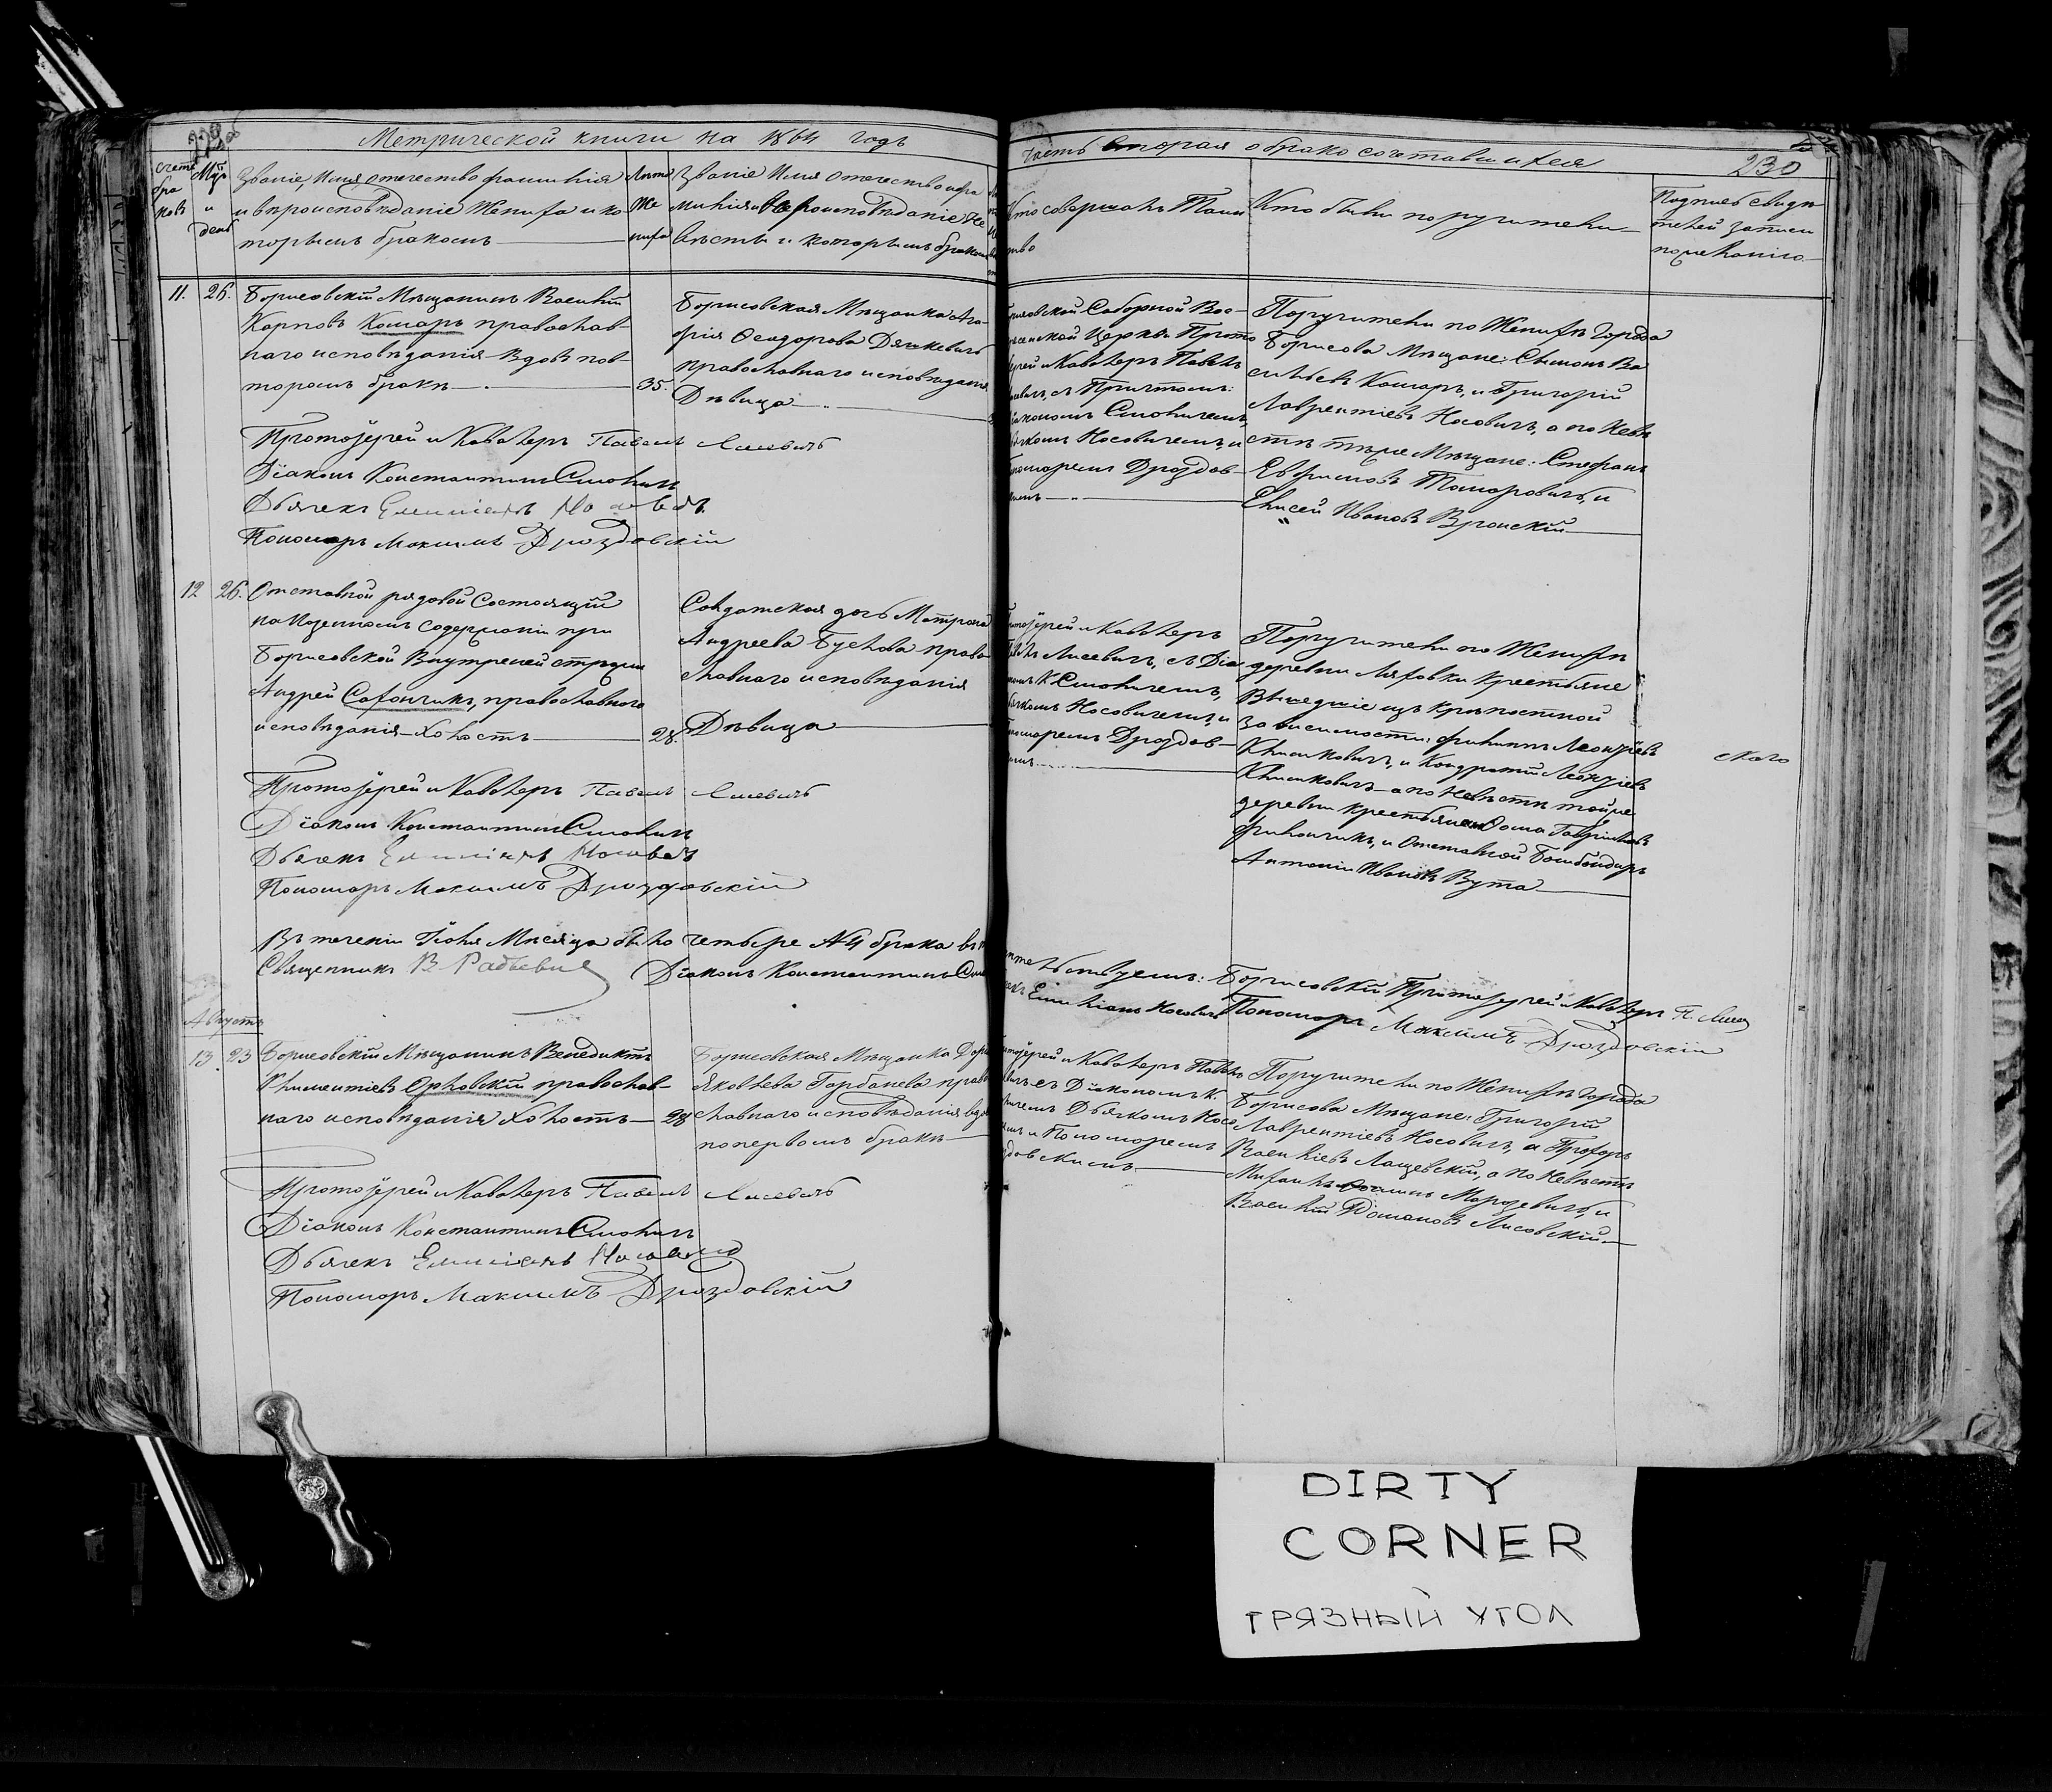 Метрической книги на 1864 годъ
часть вторая о бракосочетавшихся
230
Счетъ
бра
ковъ
Мцъ
и
день
Званіе, Имя, отечество фамилія
и вѣроисповѣданіе Жениха и ко
торымъ бракомъ
Лѣта
Же
ниха
Званіе Имя Отечество и фа
милія и Вѣроисповѣданіе Не
вѣсты и которымъ бракомъ
Кто совершалъ Таин
ство
Кто были поручители
Подпись свидѣ
телей записи
по желанію
11. 26.
Борисовскій Мѣщанинъ Василій
Карповъ Комаръ православ-
наго исповѣданія Вдовъ пов-
торомъ бракѣ
35.
Борисовская Мѣщанка Ага-
фія Ѳеодорова Дяшкевичъ
православнаго исповѣданія
Дѣвица
Соборной Вос-
Церкви Прото
и Кавалеръ Павелъ
съ Причтомъ:
Смоличемъ,
Носовичемъ, и
Дроздов-
Поручители по Женихѣ города
Борисова Мѣщане: Сымонъ Ва
сильевъ Комаръ, и Григорій
Лаврентіевъ Носовичъ, а по Невѣ
стѣ тѣже Мѣщане: Стефанъ
Евфимовъ Таморовичъ, и
Елисей Ивановъ Вронскій
Протоіерей и Кавалеръ Павелъ Лисевичъ
Діаконъ Константинъ Смоличъ
Дьячекъ Емиліянъ Носовичъ
Пономарь Максимъ Дроздовскій
12 26.
Отставной рядовой Состоящій
на Казенномъ содержаніи при
Борисовской Внутреней стражи
Андрей Сафончикъ, православнаго
исповѣданія Холостъ
28.
Солдатская дочь Матрона
Андреева Буслова право
славнаго исповѣданія
Дѣвица
и Кавалеръ
Лисевичъ, съ Діа
К. Смоличемъ,
Носовичемъ, и
Дроздов-
Поручители по Женихѣ
деревни Ляховки Крестьяне
Вышедшіе изъ крѣпостной
зависимости: Филипъ Леонтіевъ
Климковичъ, и Кондратій Леонтіевъ
Климковичъ а по Невѣстѣ тойже
деревни крестьянинъ Ѳома Гавриловъ
Филончикъ, и Отставной Бомбандиръ
Антоній Ивановъ Вута
Протоіерей и Кавалеръ Павелъ Лисевичъ
Діаконъ Константинъ Смоличъ
Дьячекъ Емиліянъ Носовичъ
Пономарь Максимъ Дроздовскій
Въ теченіи Іюля Мѣсяца было четыре №4 брака въ
Борисовскій Протоіерей и Кавалеръ П. Лисев
Священникъ В. Радзевич
Діаконъ Константинъ
Емиліанъ Носовичъ Пономарь Максимъ Дроздовскій
Августъ
13. 23
Борисовскій Мѣщанинъ Венедиктъ
Климентіевъ Орловскій православ-
наго исповѣданія Холостъ
28
Борисовская Мѣщанка
Яковлева Горбачева
славнаго исповѣданія
по первомъ бракѣ
и Кавалеръ Павелъ
съ Діакономъ К.
Дьячкомъ Носо
и Пономаремъ
Поручители по Женихѣ Города
Борисова Мѣщане: Григорій
Лаврентіевъ Носовичъ, и Прохоръ
Василіевъ Лащевскій, а по Невѣстѣ
Михаилъ Морозевичъ, и
Василій Романовъ Лисовскій
Протоіерей и Кавалеръ Павелъ Лисевичъ
Діаконъ Константинъ Смоличъ
Дьячекъ Емиліянъ Носовичъ
Пономарь Максимъ Дроздовскій
DIRTY
CORNER
ГРЯЗНЫЙ УГОЛ